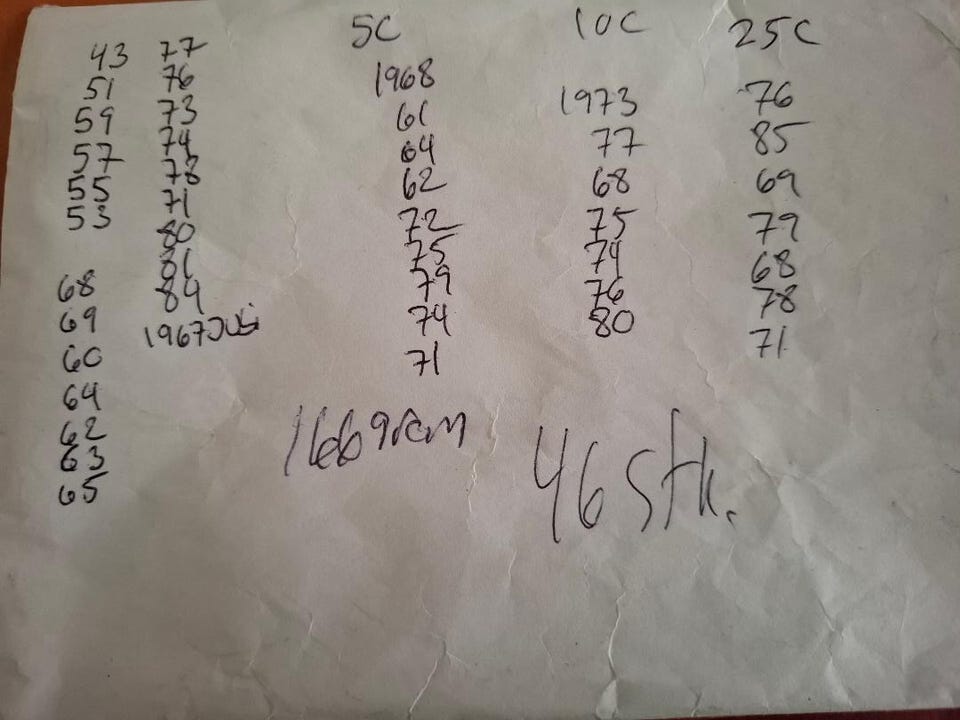 43
51
59
57
55
53
68
69
60
64
62
63
65
77
76
73
74
78
71
80
81
84
1967
5C
1968
61
64
62
72
75
79
74
71
10C
1973
77
68
75
74
76
80
25C
76
85
69
79
68
78
71
166gram
46 stk.